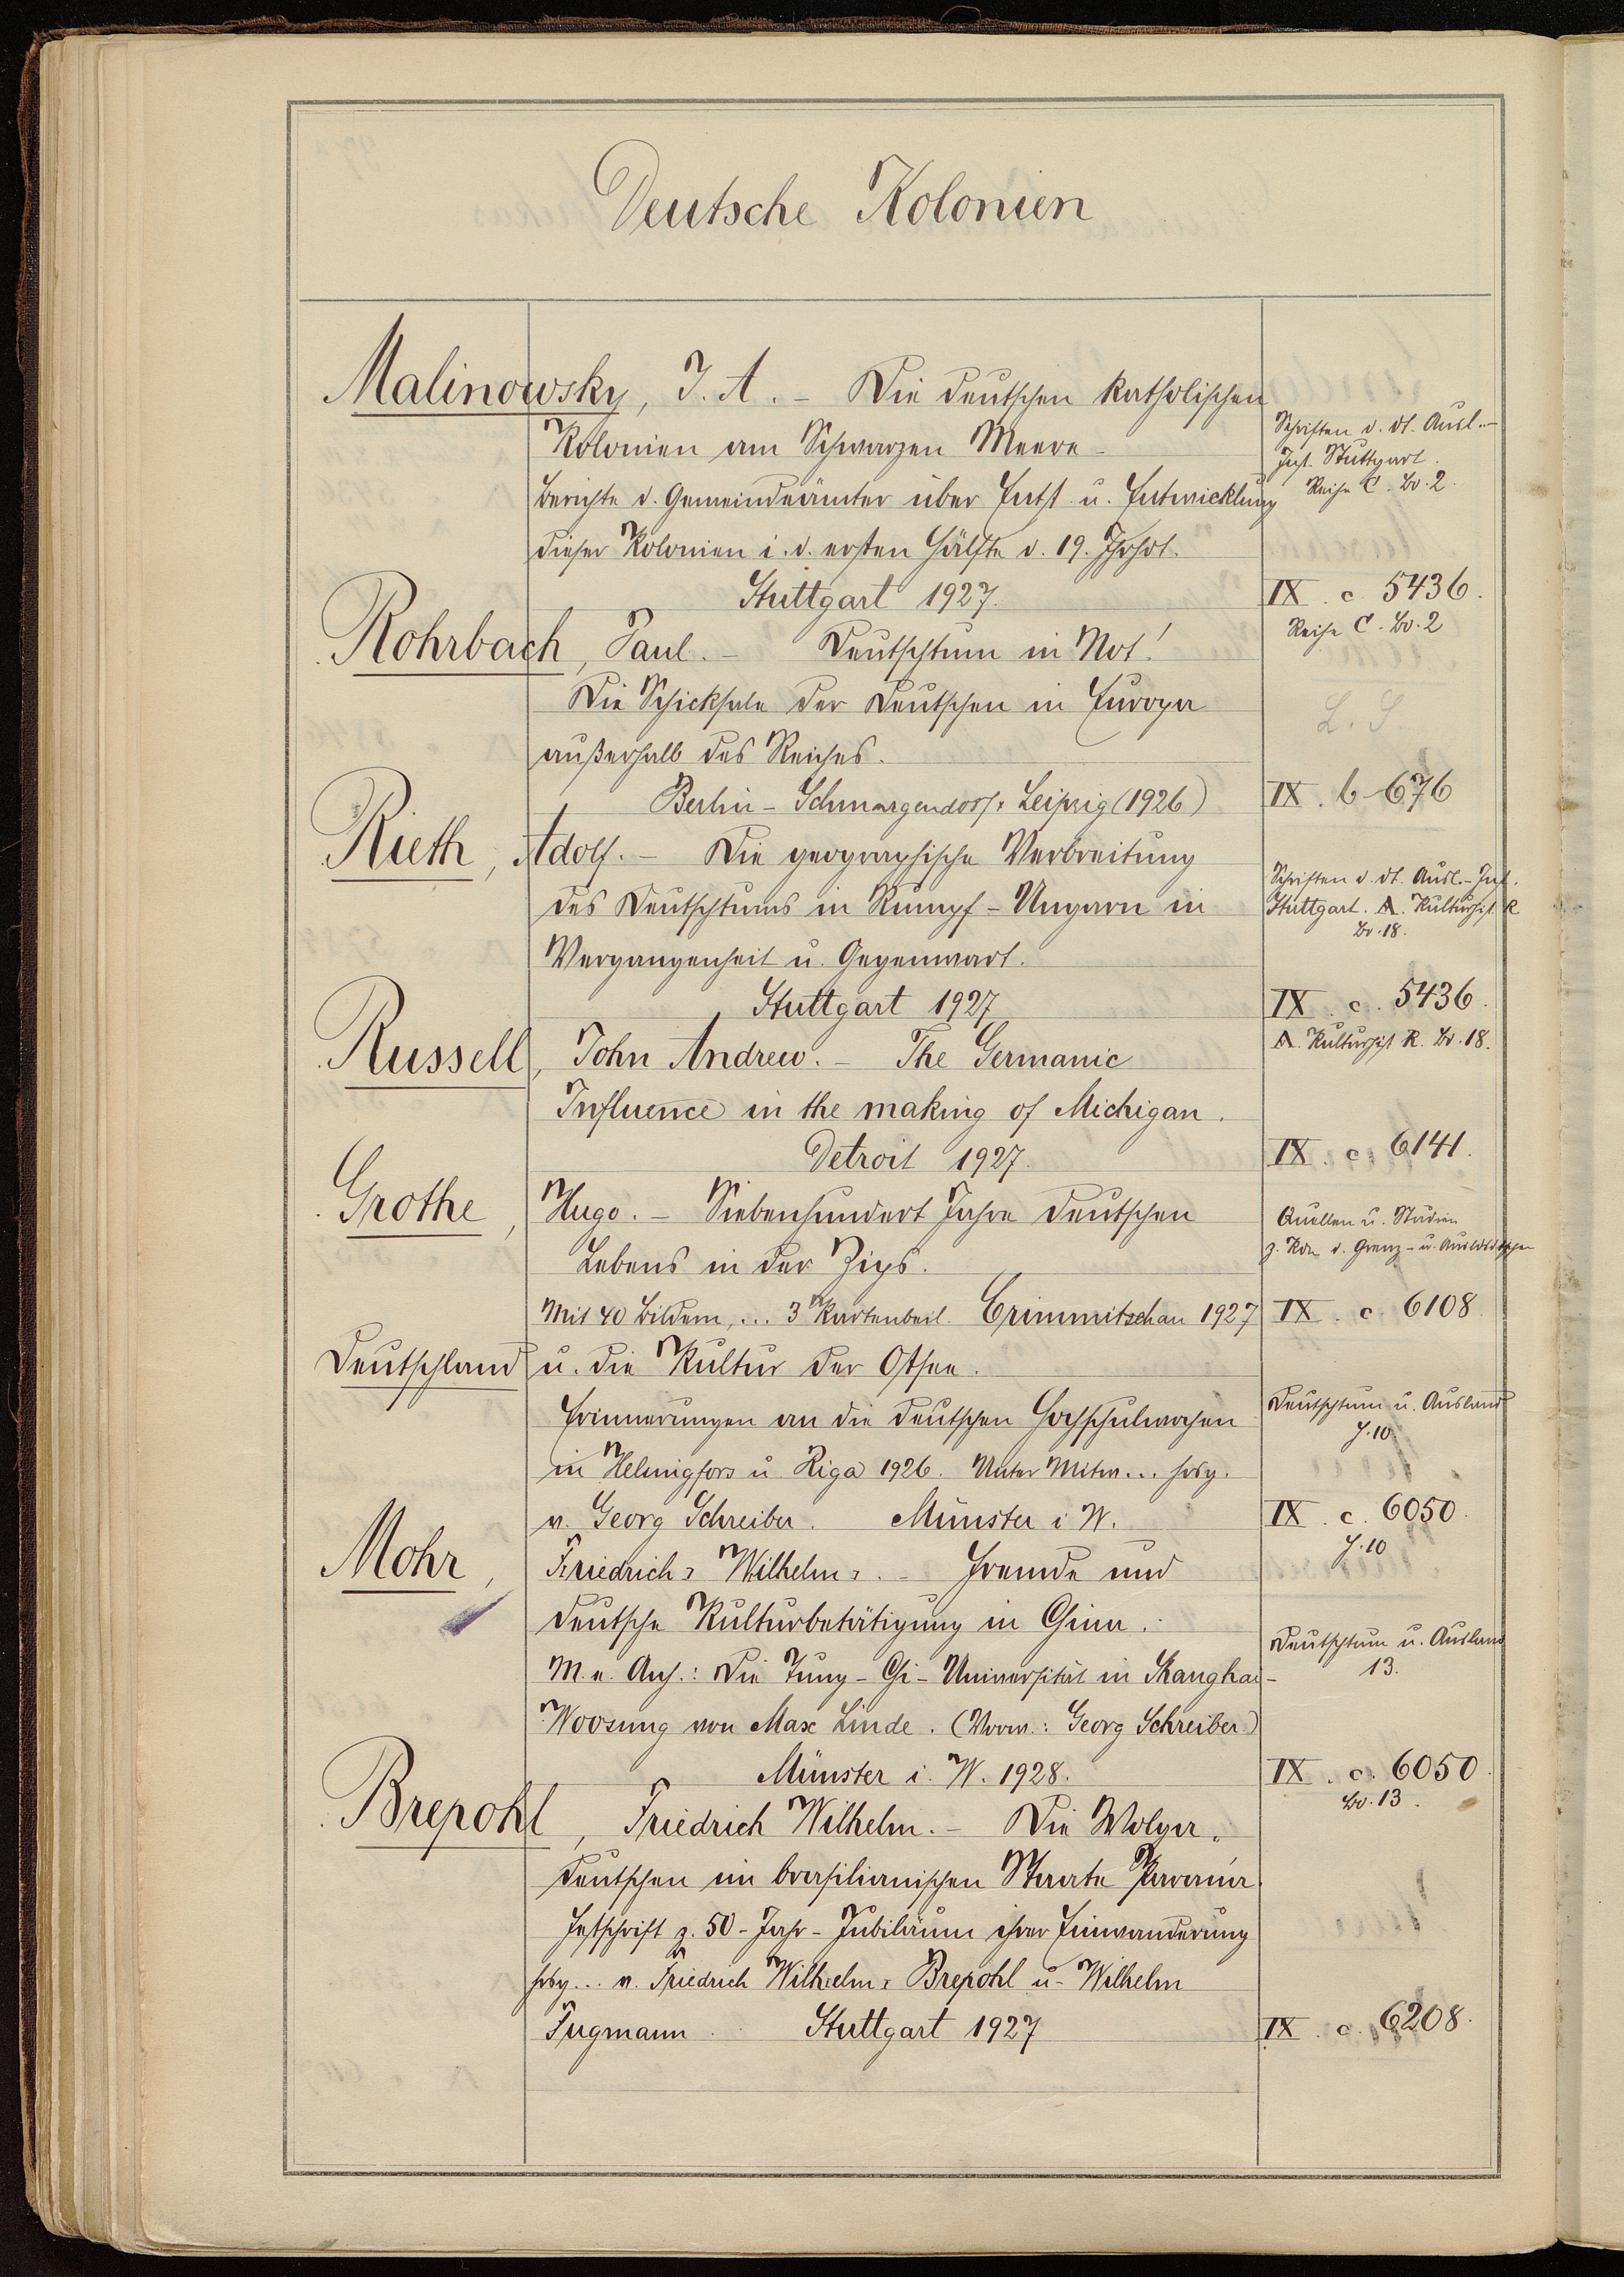 Deutsche Kolonien
Malinowsky, J. A. - Die deutschen katholischen
Kolonien am Schwarzen Meere -
Schriften d. dt. Ausl.-
Inst. Stuttgart.
Berichte d. Gemeindeämter über Entst. u. Entwicklung
Reihe C. Bd. 2.
dieser Kolonien i. d. ersten Hälfte d. 19. Jhrhdt.
Stuttgart 1927.
IX. c. 5436.
Reihe C. Bd. 2
Rohrbach, Paul. - Deutschtum in Not!
Die Schicksale der Deutschen in Europa
L. S.
außerhalb des Reiches.
Berlin - Schmargendorf, Leipzig (1926)
IX. b 676
Rieth, Adolf. - Die geographische Verbreitung
des Deutschtums in Rumpf-Ungarn in
Schriften d. dt. Ausl.-Inst.
Stuttgart. A. Kulturhist. R
Bd. 18.
Vergangenheit u. Gegenwart.
Stuttgart 1927
IX. c. 5436.
A. Kulturhist R. Bd. 18.
Russell, John Andrew. - The Germanic
Influence in the making of Michigan.
Detroit 1927.
IX. c. 6141.
Grothe, Hugo. - Siebenhundert Jahre deutschen
Lebens in der Zips.
Quellen u. Studien
z. Kde d. Grenz- u.
Mit 40 Bildern, ... 3 Kartenbeil. Crimmitschau 1927
IX. c. 6108
Deutschland u. die Kultur der Ostsee.
Erinnerungen an die deutschen Hochschulwochen
Deutschtum u. Ausland
H. 10
in Helsingfors u. Riga 1926. Unter Mitw... hrsg.
v. Georg Schreiber. Münster i W.
IX. c. 6050.
H. 10
Mohr, Friedrich Wilhelm. - Fremde und
deutsche Kulturbetätigung in China.
Deutschtum u. Ausland
13.
M. e. Anh.: Die Tung-Chi-Universität in Shanghai-
Woosung von Max Linde. (Vorw.: Georg Schreiber)
Münster i. W. 1928.
IX. c. 6050.
Bd. 13.
Brepohl, Friedrich Wilhelm. - Die Wolga-
deutschen im brasilianischen Staate Paraná.
Festschrift z. 50-Jahr-Jubiläum ihrer Einwanderung
hrsg... v. Friedrich Wilhelm Brepohl u. Wilhelm
Fugmann. Stuttgart 1927
IX. c. 6208.